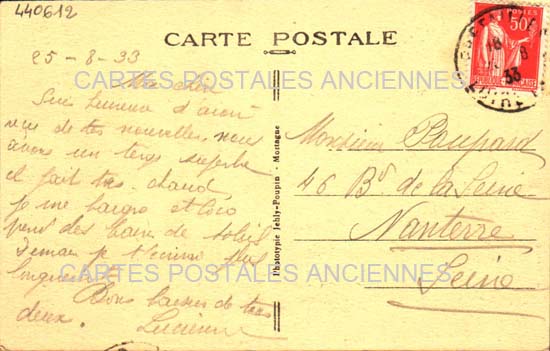 440612
CARTE POSTALE
25-8-33
Suis heureux d'avoir
vu de tes nouvelles, nous
avons un temps superbe
il fait très chaud
je me baigne et Coco
prend des bains de soleil
demain je t'écrirai plus
Bons baisers de tous
deux. Lucienne
Phototypie Jehly-Poupin - Mortagne
POSTES
50c
18
8
33
Monsieur Poupard
46 Bd de la Seine
Nanterre
Seine
CARTES POSTALES ANCIENNES
CARTES POSTALES ANCIENNES